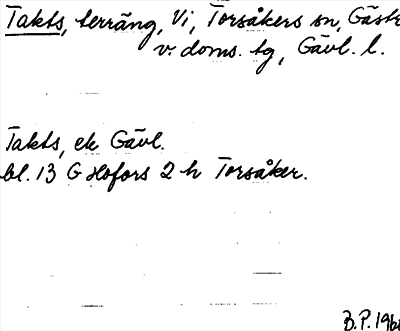 Takts, terräng, Vi, Torsåkers sn, Gästr
v. doms. tg, Gävl. l.
Takts, ek Gävl.
bl. 13 G Hofors 2 h Torsåker.
B.P. 196